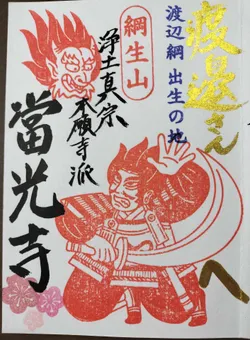 渡邊さん
へ
渡辺綱 出生の地
綱生山
浄土真宗
本願寺派
當光寺